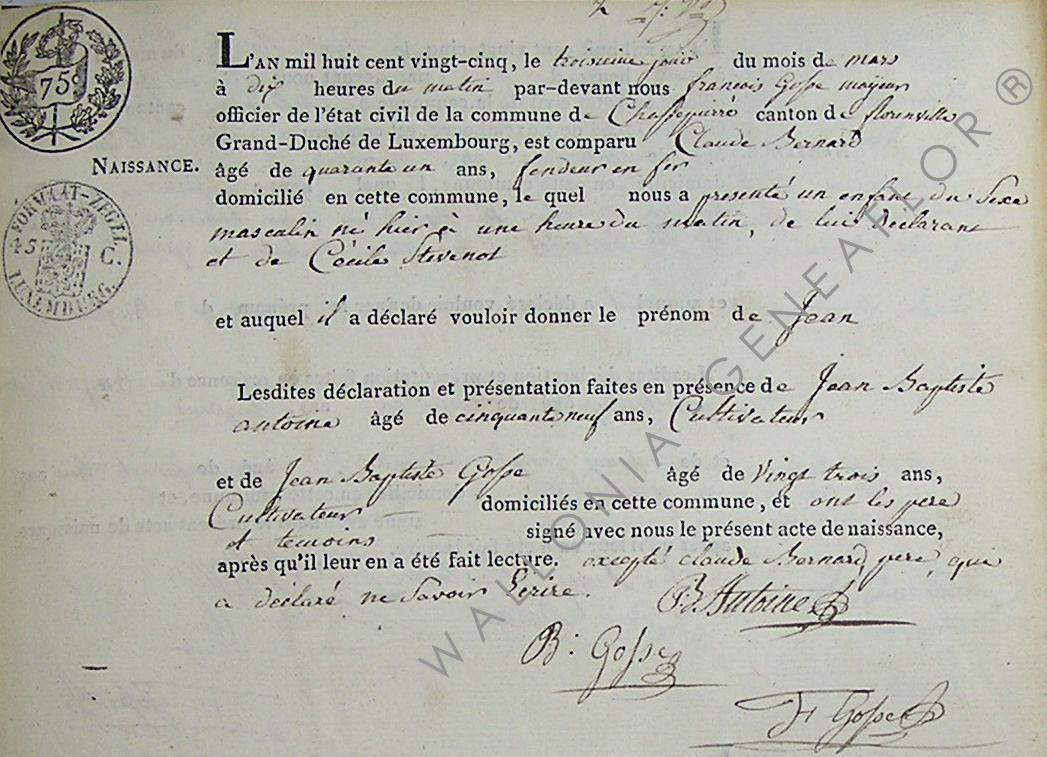 75c
NAISSANCE.
FORMAAT-ZEGEL
45 C.
LUXEMBURG.
L'AN mil huit cent vingt-cinq, le troisieme jour du mois de mars
à dix heures du matin par-devant nous francois Gosse mayeur
officier de l'état civil de la commune de Chassepierre canton de florenville
Grand-Duché de Luxembourg, est comparu Claude Bernard
âgé de quarante un ans, fendeur en fer
domicilié en cette commune, le quel nous a presenté un enfant du Sexe
masculin né hier à une heure du matin, de lui déclarant
et de Cécile Stevenot
et auquel il a déclaré vouloir donner le prénom de Jean
Lesdites déclaration et présentation faites en présence de Jean Baptiste
antoine âgé de cinquante neuf ans, Cultivateur
et de Jean Baptiste Gosse âgé de Vingt trois ans,
Cultivateur domiciliés en cette commune, et ont les pere
et temoins signé avec nous le présent acte de naissance,
après qu'il leur en a été fait lecture. excepté claude Bernard, pere, qui
a déclaré ne Savoir Ecrire. B. Antoine
B: Gosse
F Gosse
WALLONIA GENEAFLOR ®